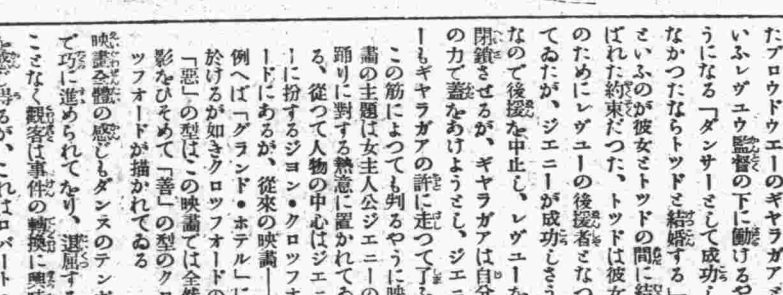 たブロウドウエーのギャラガア
いふレヴエウ監督の下に働けるや
うになる「ダンサーとして成功
なかつたならトッドと結婚する」
といふのが彼女とトッドの間に結
ばれた約束だつた、トッドは彼女
のためにレヴューの後援者となつ
てゐたが、ジエニーが成功しさう
なので後援を中止し、レヴユーを
閉鎖させるが、ギヤラガアは自分
の力で蓋をあけようとし、ジエニ
ーもギヤラガアの許に走つて了ふ
この筋によつても判るやうに映
畵の主題は女主人公ジエニーの
踊りに對する熱意に置かれてゐ
る、從つて人物の中心はジエニ
ーに扮するジヨン・クロツフオ
ードにあるが、從來の映畵―
例へば「グランド・ホテル」に
於けるが如きクロツフオードの
「惡」の型はこの映畵では全然
影をひそめて「善」の型のクロ
ツフオードが描かれてゐる
映畵全體の感じもダンスのテンポ
で巧に進められてをり、退屈する
ことなく觀客は事件の轉換に興味
るが、これはロバート